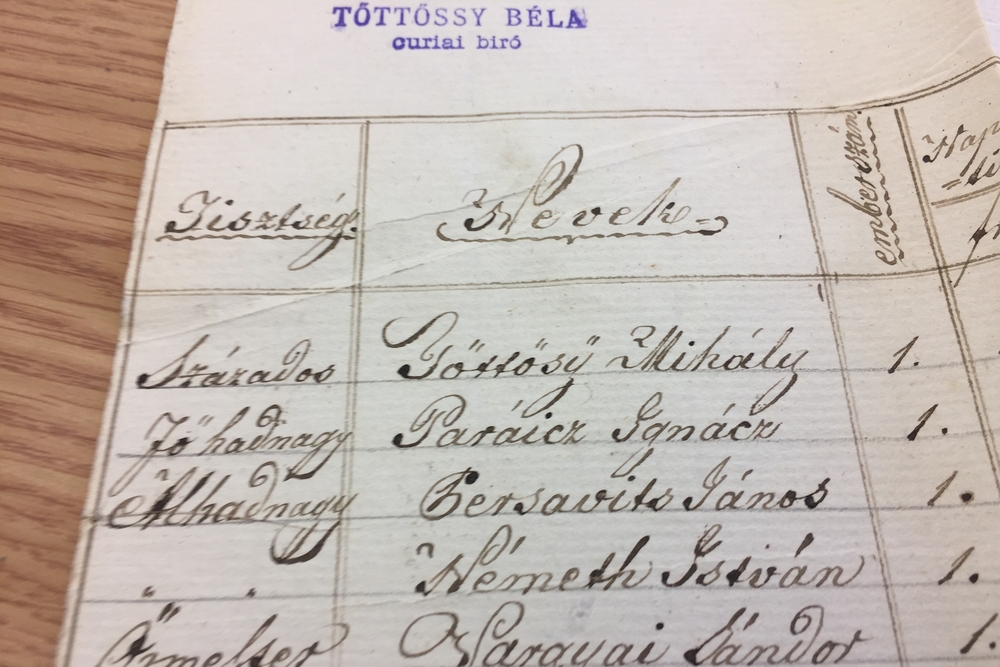 TŐTTŐSSY BÉLA
curiai biró
Tisztség. Nevek= emberszám.
Századosi Tőttősÿ Mihály 1.
Fő hadnagy Paráicz Ignácz 1.
Alhadnagy Bersavits János 1.
" " Németh István 1.
Őrmester Sándor 1.